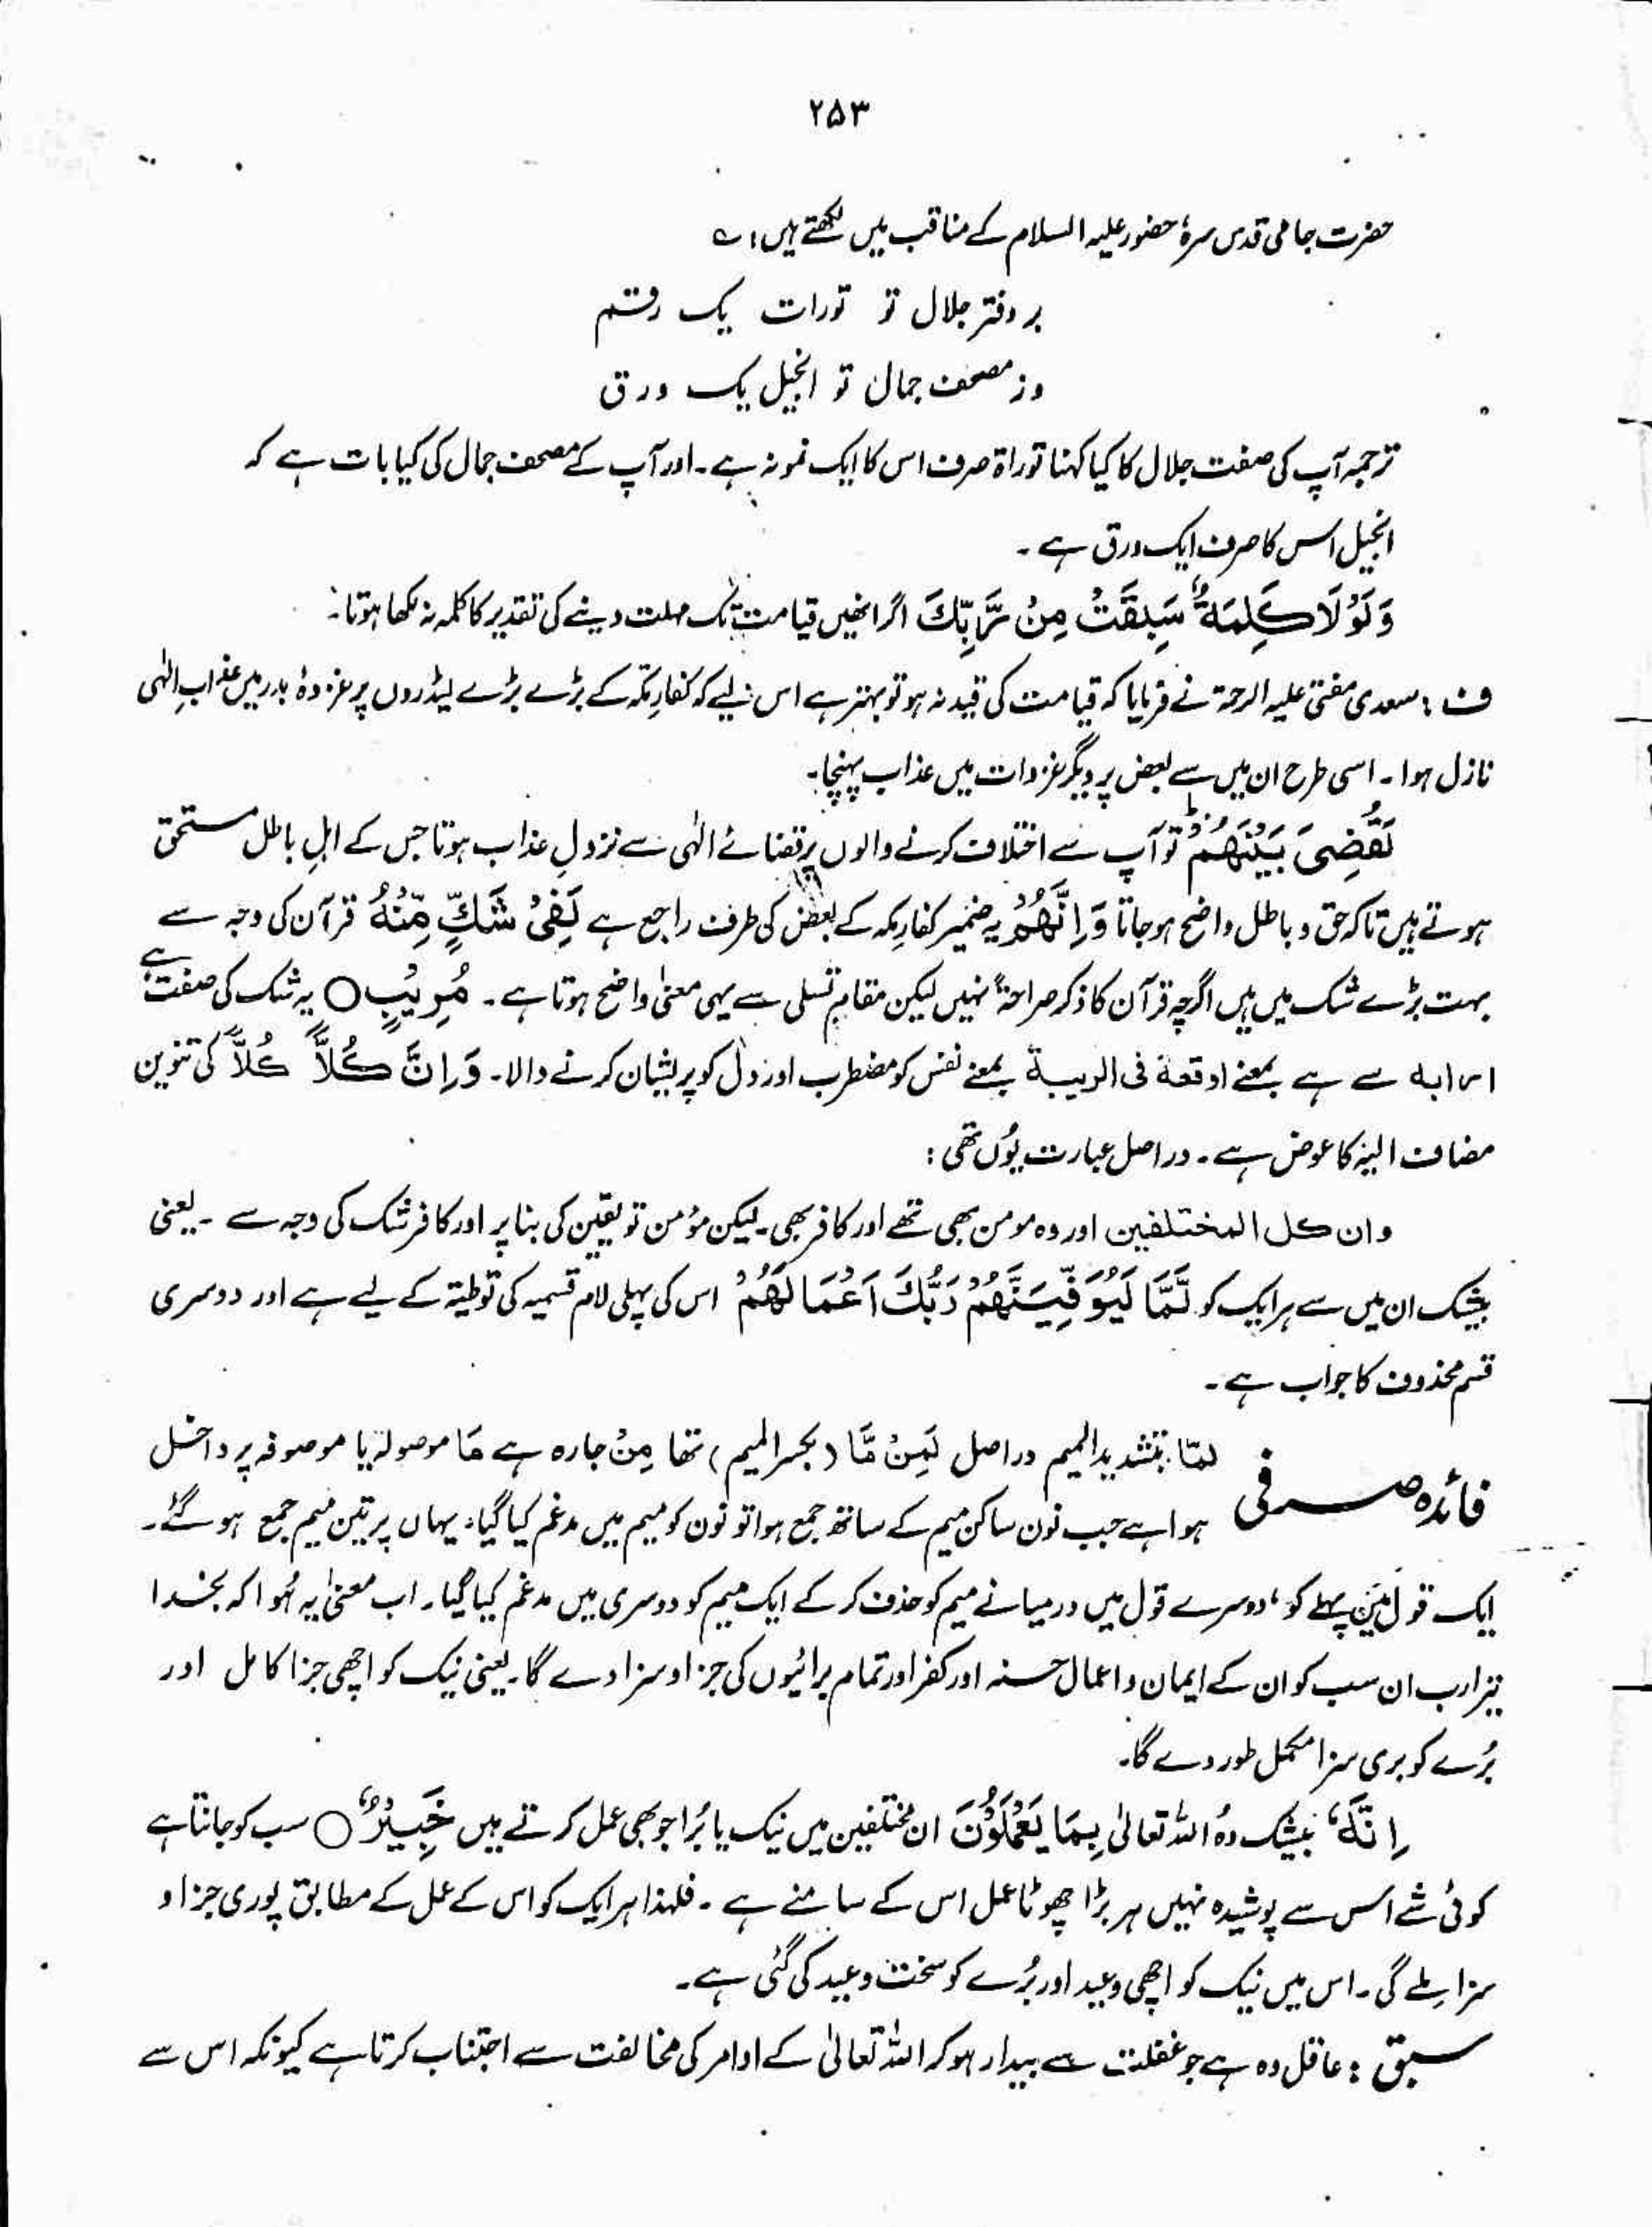 ۲۵۳
حضرت جامی قدس سرہٗ حضور علیہ السلام کے مناقب میں لکھتے ہیں : ؎
بر دفتر جلال تو تورات یک رقم
وز مصحف جمال تو انجیل یک ورق
ترجمہ آپ کی صفت جلال کا کیا کہنا توراۃ صرف اس کا ایک نمونہ ہے ۔ اور آپ کے مصحف جمال کی کیا بات ہے کہ
انجیل اس کا صرف ایک ورق ہے ۔
وَلَوْلَا كَلِمَةٌ سَبَقَتْ مِنْ رَّبِّكَ اگر انھیں قیامت تک مہلت دینے کی تقدیر کا کلمہ نہ لکھا ہوتا :
ف : سعدی مفتی علیہ الرحمۃ نے فرمایا کہ قیامت کی قید نہ ہو تو بہتر ہے اس لیے کہ کفارِ مکّہ کے بڑے بڑے لیڈروں پر غزوۂ بدر میں عذابِ الٰہی
نازل ہوا ۔ اسی طرح ان میں سے بعض پر دیگر غزوات میں عذاب پہنچا ۔
لَقُضِیَ بَيْنَهُمْ ط تو آپ سے اختلاف کرنے والوں پر قضائے الٰہی سے نزولِ عذاب ہوتا جس کے اہلِ باطل مستحق
ہوتے ہیں تاکہ حق و باطل واضح ہو جاتا وَاِنَّهُمْ یہ ضمیر کفارِ مکہ کے بعض کی طرف راجع ہے لَفِیْ شَكٍّ مِّنْهُ قرآن کی وجہ سے
بہت بڑے شک میں ہیں اگرچہ قرآن کا ذکر صراحۃً نہیں لیکن مقامِ تسلی سے یہی معنیٰ واضح ہوتا ہے ۔ مُرِيْبٍ ○ یہ شک کی صفت ہے
ارابہ سے ہے بمعنے اوقعۃ فی الریبۃ بمعنے نفس کو مضطرب اور دل کو پریشان کرنے والا ۔ وَاِنَّ كُلًّا كُلًّا کی تنوین
مضاف الیہ کا عوض ہے ۔ دراصل عبارت یُوں تھی :
وان كل المختلفين اور وہ مومن بھی تھے اور کافر بھی ۔ لیکن مؤمن تو یقین کی بنا پر اور کافر شک کی وجہ سے ۔ یعنی
بیشک ان میں سے ہر ایک کو لَّمَّا لَيُوَفِّيَنَّهُمْ رَبُّكَ اَعْمَالَهُمْ اس کی پہلی لام قسمیہ کی توطیۃ کے لیے ہے اور دوسری
قسم محذوف کا جواب ہے ۔
فائدہ صرفی لمّا بتشدید المیم دراصل لَمِنْ مَّا (بکسر المیم) تھا مِنْ جارہ ہے مَا موصولہ یا موصوفہ پر داخل
ہوا ہے جب نون ساکن میم کے ساتھ جمع ہوا تو نون کو میم میں مدغم کیا گیا ، یہاں پر تین میم جمع ہو گئے ۔
ایک قول میں پہلے کو ، دوسرے قول میں درمیانے میم کو حذف کر کے ایک میم کو دوسری میں مدغم کیا گیا ۔ اب معنیٰ یہ ہُوا کہ بخدا
تیرا رب ان سب کو ان کے ایمان و اعمال حسنہ اور کفر اور تمام برائیوں کی جزا و سزا دے گا ۔ یعنی نیک کو اچھی جزا کامل اور
بُرے کو بری سزا مکمل طور دے گا ۔
اِنَّهٗ بیشک وُہ اللہ تعالیٰ بِمَا يَعْمَلُوْنَ ان مختلفین میں نیک یا بُرا جو بھی عمل کرتے ہیں خَبِيْرٌ ○ سب کو جانتا ہے
کوئی شے اس سے پوشیدہ نہیں ہر بڑا چھوٹا عمل اس کے سامنے ہے ۔ فلہذا ہر ایک کو اس کے عمل کے مطابق پوری جزا و
سزا ملے گی ۔ اس میں نیک کو اچھی وعید اور بُرے کو سخت وعید کی گئی ہے ۔
سبق : عاقل وہ ہے جو غفلت سے بیدار ہو کر اللہ تعالیٰ کے اوامر کی مخالفت سے اجتناب کرتا ہے کیونکہ اس سے